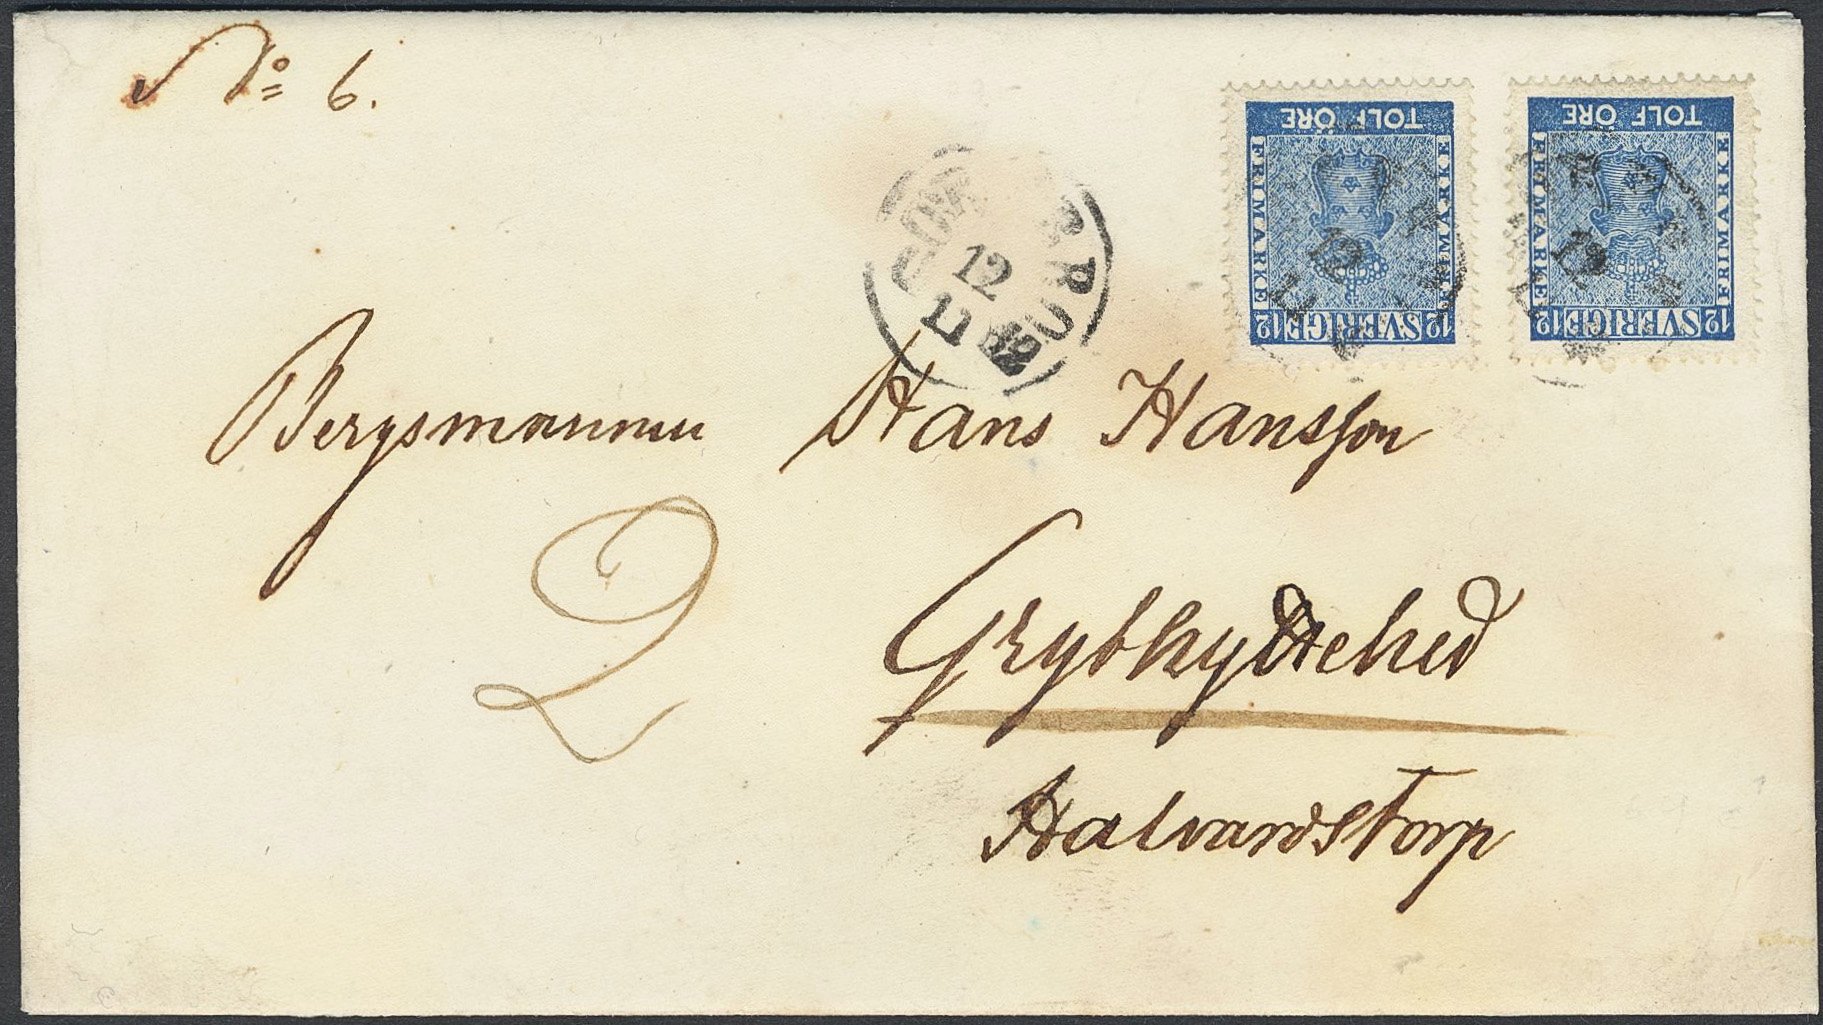 No 6.
TOLF ÖRE
FRIMARKE
FRIMARKE
12 SVERIGE 12
TOLF ÖRE
FRIMARKE
FRIMARKE
12 SVERIGE 12
12
12
Bergsmannen Hans Hansson
2
Grythyttehed
Halvardstorp